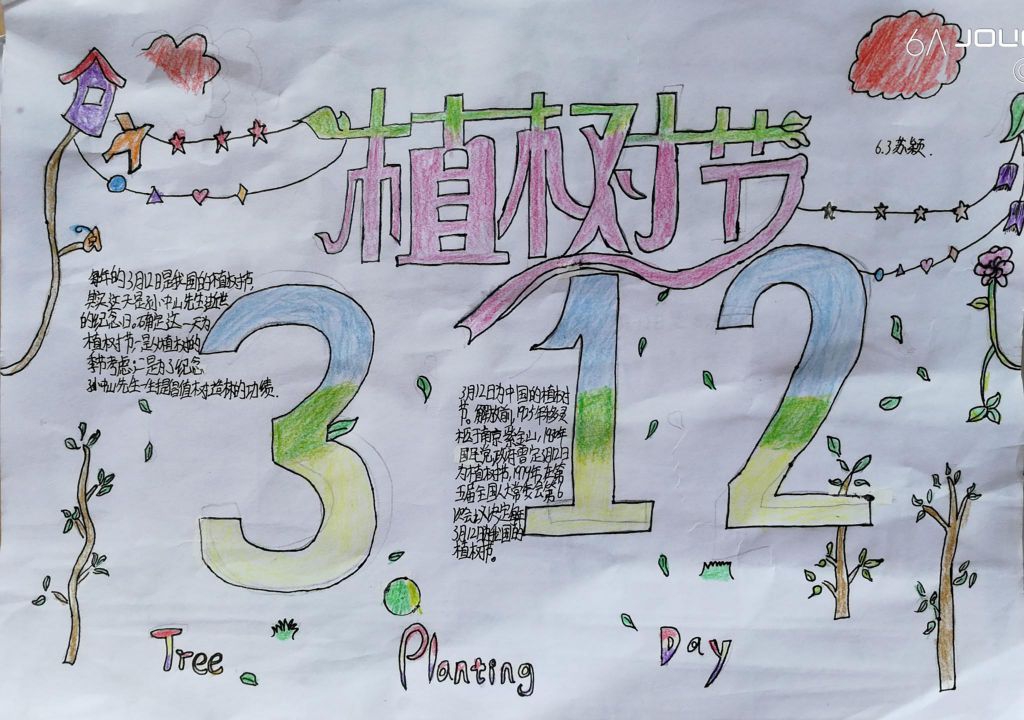 6A JOU
植树节
6.3苏颖.
每年的3月12日是我国的植树节,
其实这天是孙中山先生逝世
的纪念日。确定这一天为
植树节,一是从植树的
季节考虑;二是为了纪念
孙中山先生一生提倡植树造林的功绩.
312
3月12日为中国的植树
节。解放前,1925年移灵
于南京紫金山,19年
国民党政府曾定3月12日
为植树节,1979年,在第
五届全国人大常委会第6
次会议决定每年
3月12日我国的
植树节。
Tree Planting Day